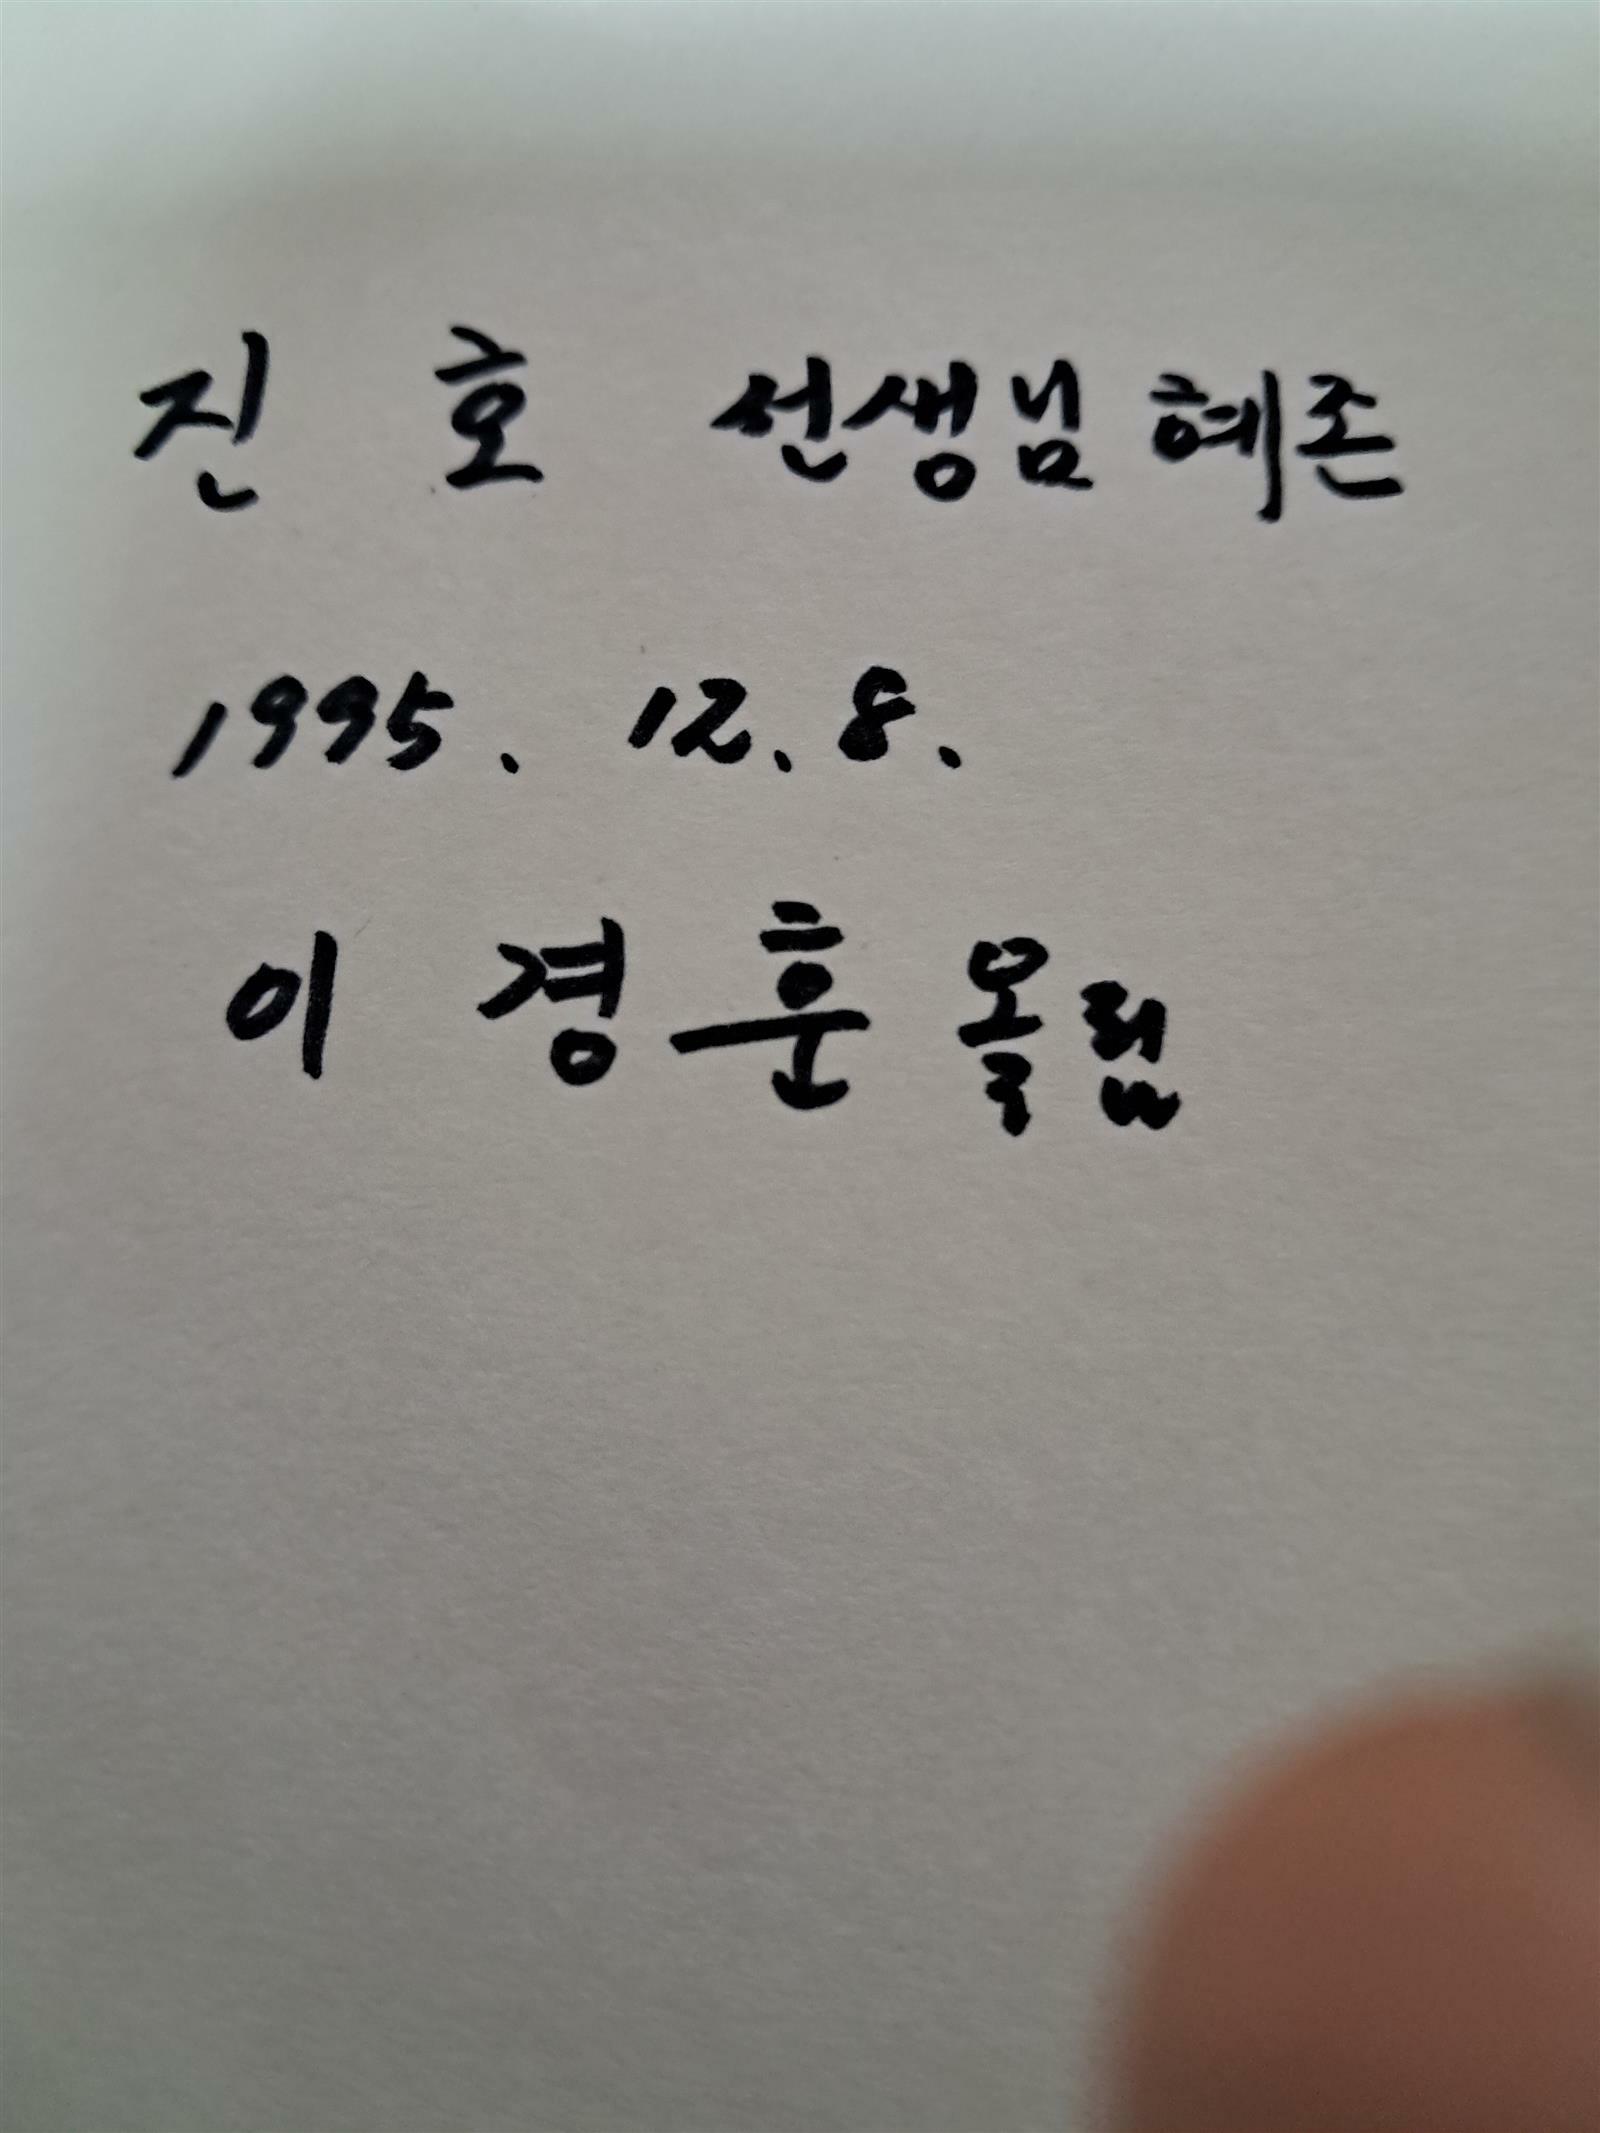 진 호 선생님 혜존
1995. 12. 8.
이 경훈 올림